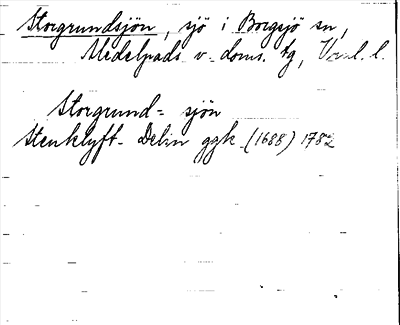 Storgrundsjön, sjö i Borgsjö sn,
Medelpads v. doms. tg, Vnl. l.
Storgrund= sjön
Stenklyft- Delin ggk (1688) 1782